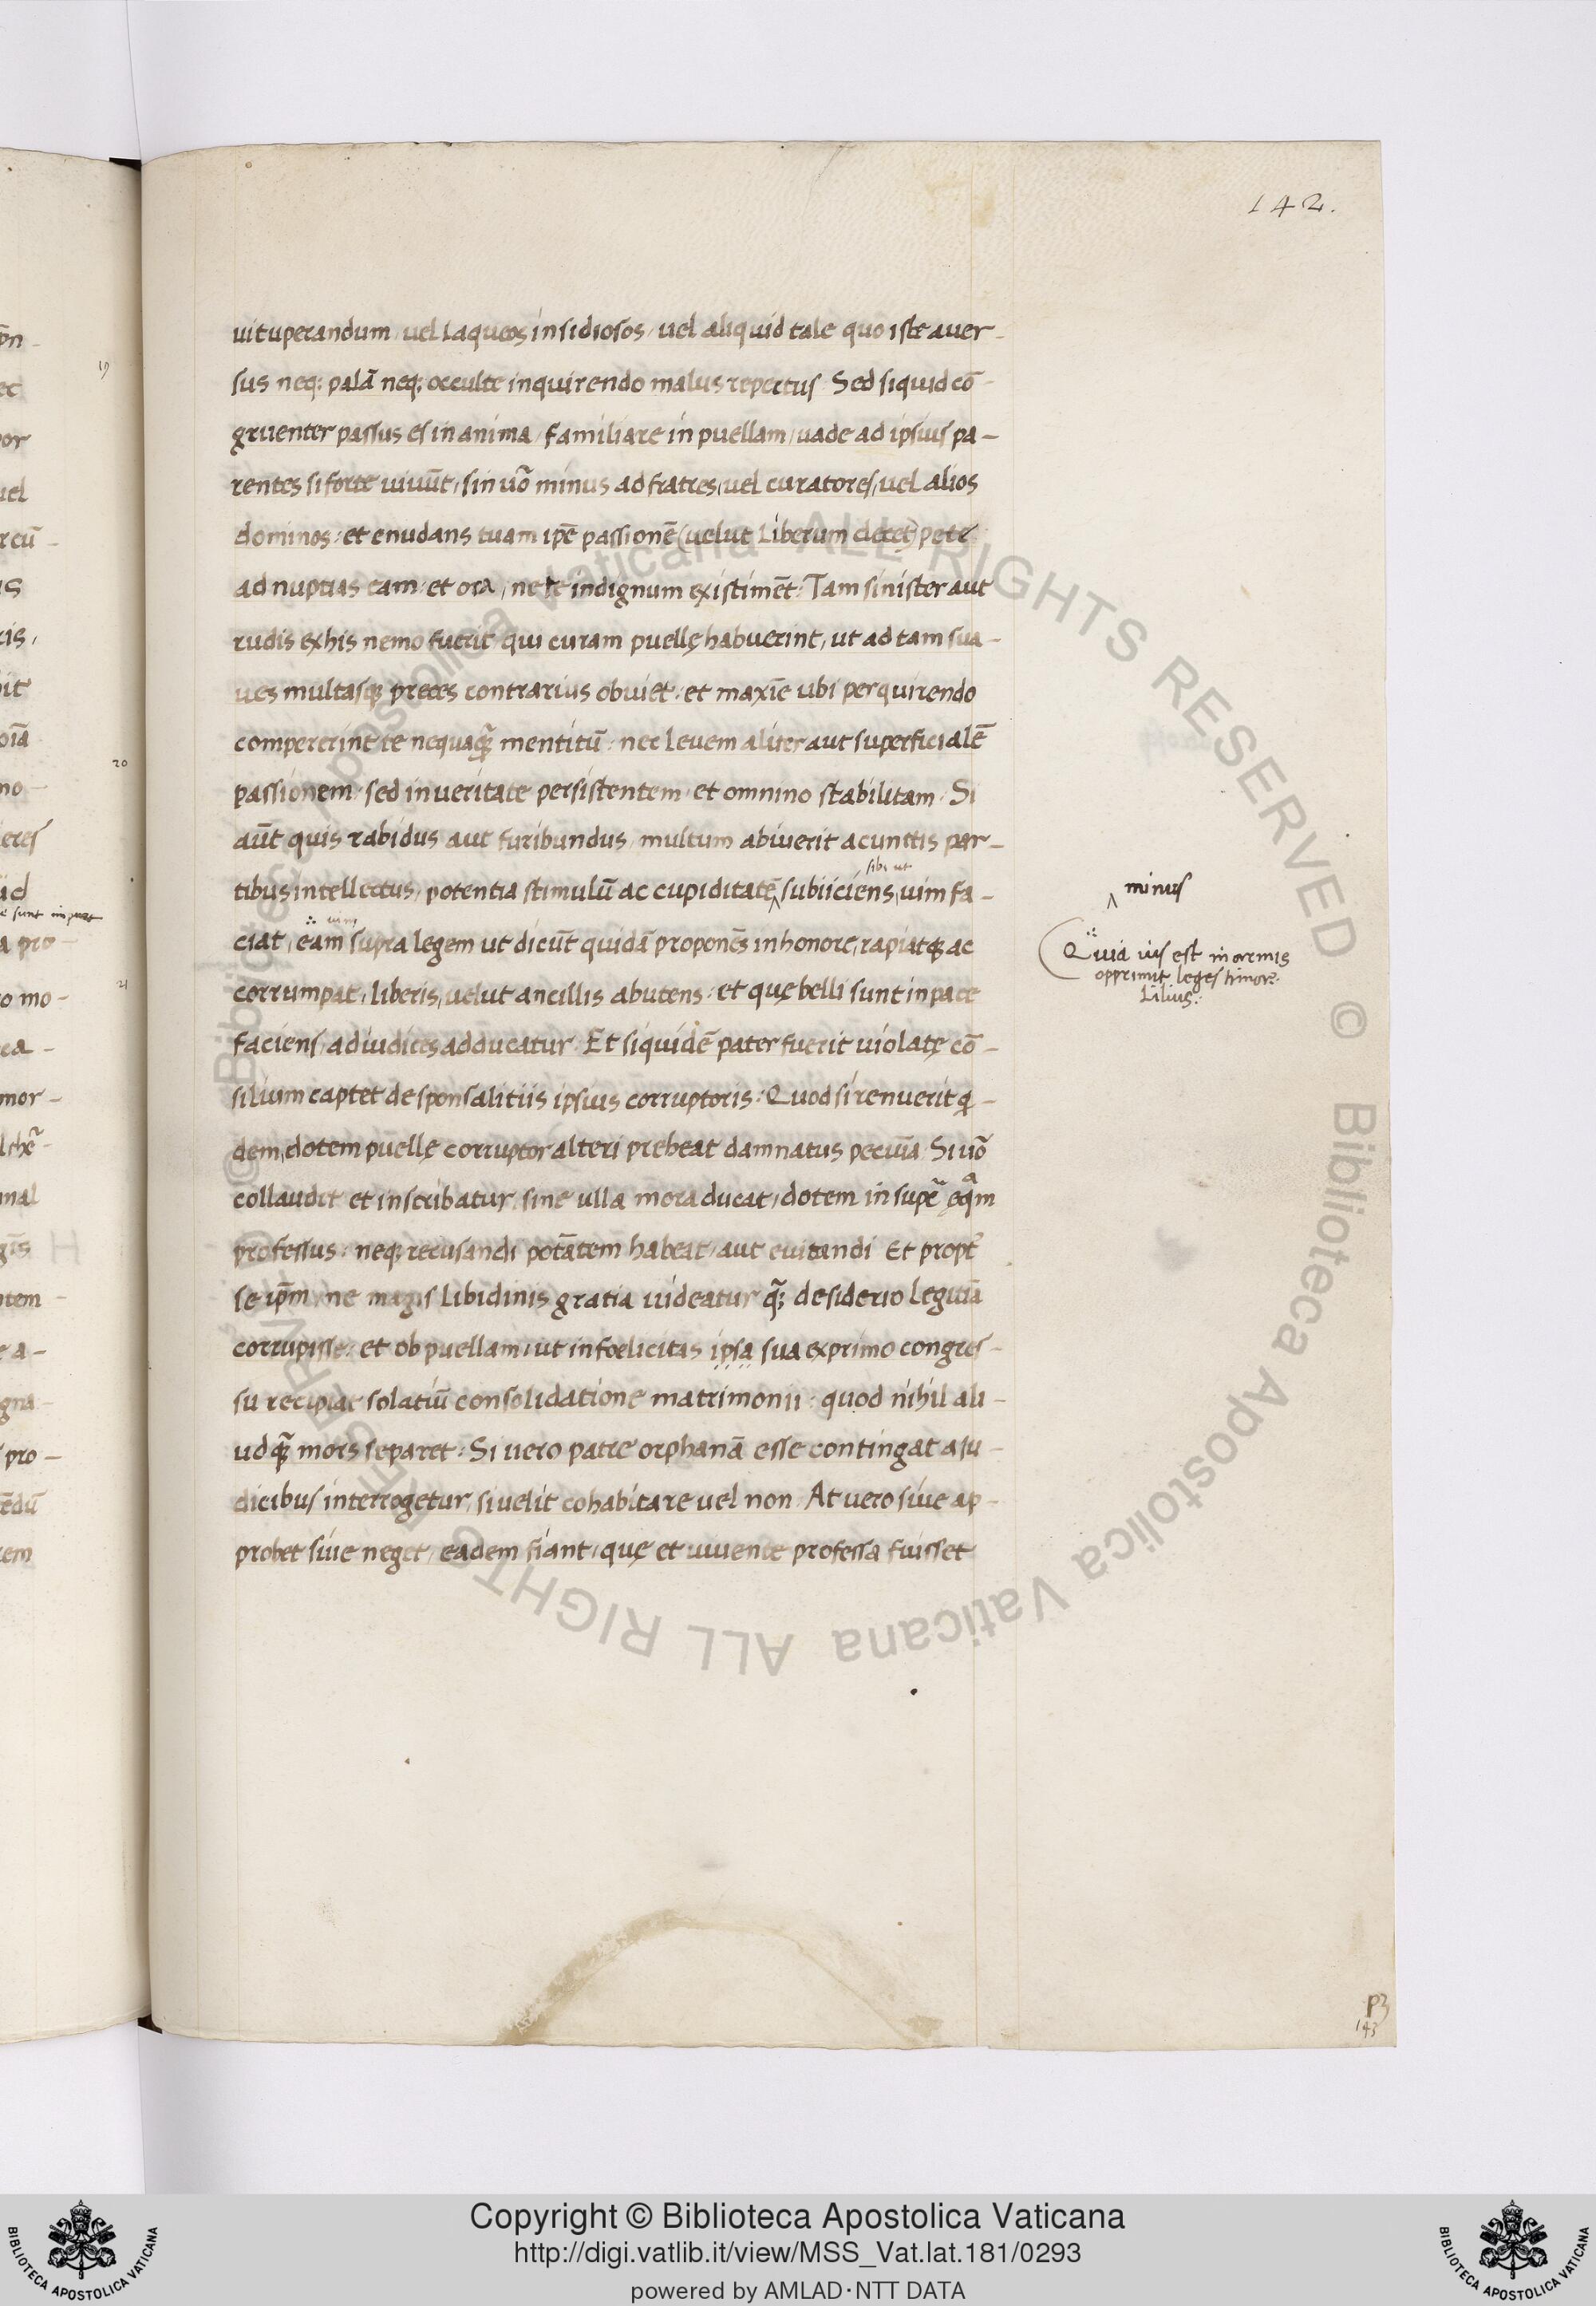 142.
uituperandum, uel laqueos insidiosos, uel aliquid tale quo iste auer-
sus neq; palā neq; occulte inquirendo malus repertus. Sed siquid cō-
gruenter passus es in anima, familiare in puellam, uade ad ipsius pa-
rentes si forte uiuūt, sin uō minus ad fratres, uel curatores, uel alios
dominos: et enudans tuam ipē passionē (uelut liberum decet) pete
ad nuptias eam: et ora, ne te indignum existimēt: Tam sinister aut
rudis ex his nemo fuerit qui curam puellę habuerint, ut ad tam sua-
ues multasq; preces contrarius obuiet: et maxīe ubi perquirendo
compererint te nequaq̄ mentitū: nec leuem aliter aut superficialē
passionem, sed in ueritate persistentem, et omnino stabilitam. Si
aūt quis rabidus aut furibundus, multum abiuerit a cunctis par-
sibi ut
tibus intellectus, potentia stimulū ac cupiditatē subiiciens, uim fa-
minus
uim
ciat, eam supra legem ut dicūt quidā proponēs in honore, rapiatq; ac
Quia uis est in armis
opprimit leges timore.
Lilius:
corrumpat, liberis, uelut ancillis abutens: et quę belli sunt in pace
faciens, ad iudices adducatur. Et siquidē pater fuerit uiolatę cō-
silium captet de sponsalitiis ipsius corruptoris: Quod si renuerit q-
dem, dotem puellę corruptor alteri prebeat damnatus pecuīa. Si uō
collaudet et inscribatur, sine ulla mora ducat, dotem insupē ęqam
professus: neq; recusandi potātem habeat, aut euitandi. Et propt
se ipm, ne magis libidinis gratia uideatur q̄; desiderio legitīa
corrupisse: et ob puellam, ut infoelicitas ipsa sua ex primo congres-
su recipiat solatiū consolidatione matrimonii: quod nihil ali-
ud q̄ mors separet: Si uero patre orphanā esse contingat a iu-
dicibus interrogetur, si uelit cohabitare uel non. At uero siue ap-
probet siue neget, eadem fiant, quę et uiuente professa fuisset
P3
143
© Biblioteca Apostolica Vaticana ALL RIGHTS RESERVED
© Biblioteca Apostolica Vaticana ALL RIGHTS RESERVED
Copyright © Biblioteca Apostolica Vaticana
http://digi.vatlib.it/view/MSS_Vat.lat.181/0293
powered by AMLAD·NTT DATA
BIBLIOTECA APOSTOLICA VATICANA
BIBLIOTECA APOSTOLICA VATICANA